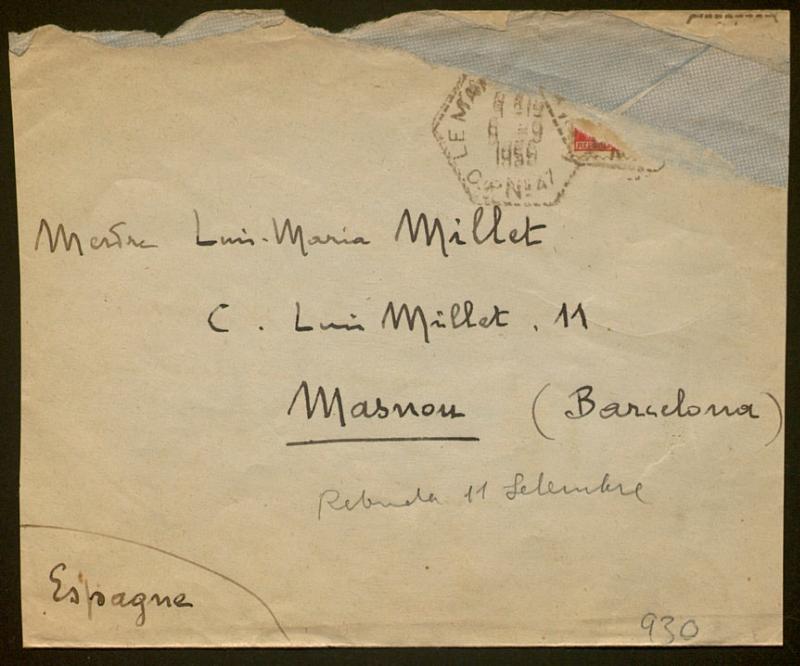 LE MA
1956
C.P. Nº 41
Mestre Luis-Maria Millet
C. Luis Millet. 11
Masnou (Barcelona)
Rebuda 11 Setembre
Espagne
930